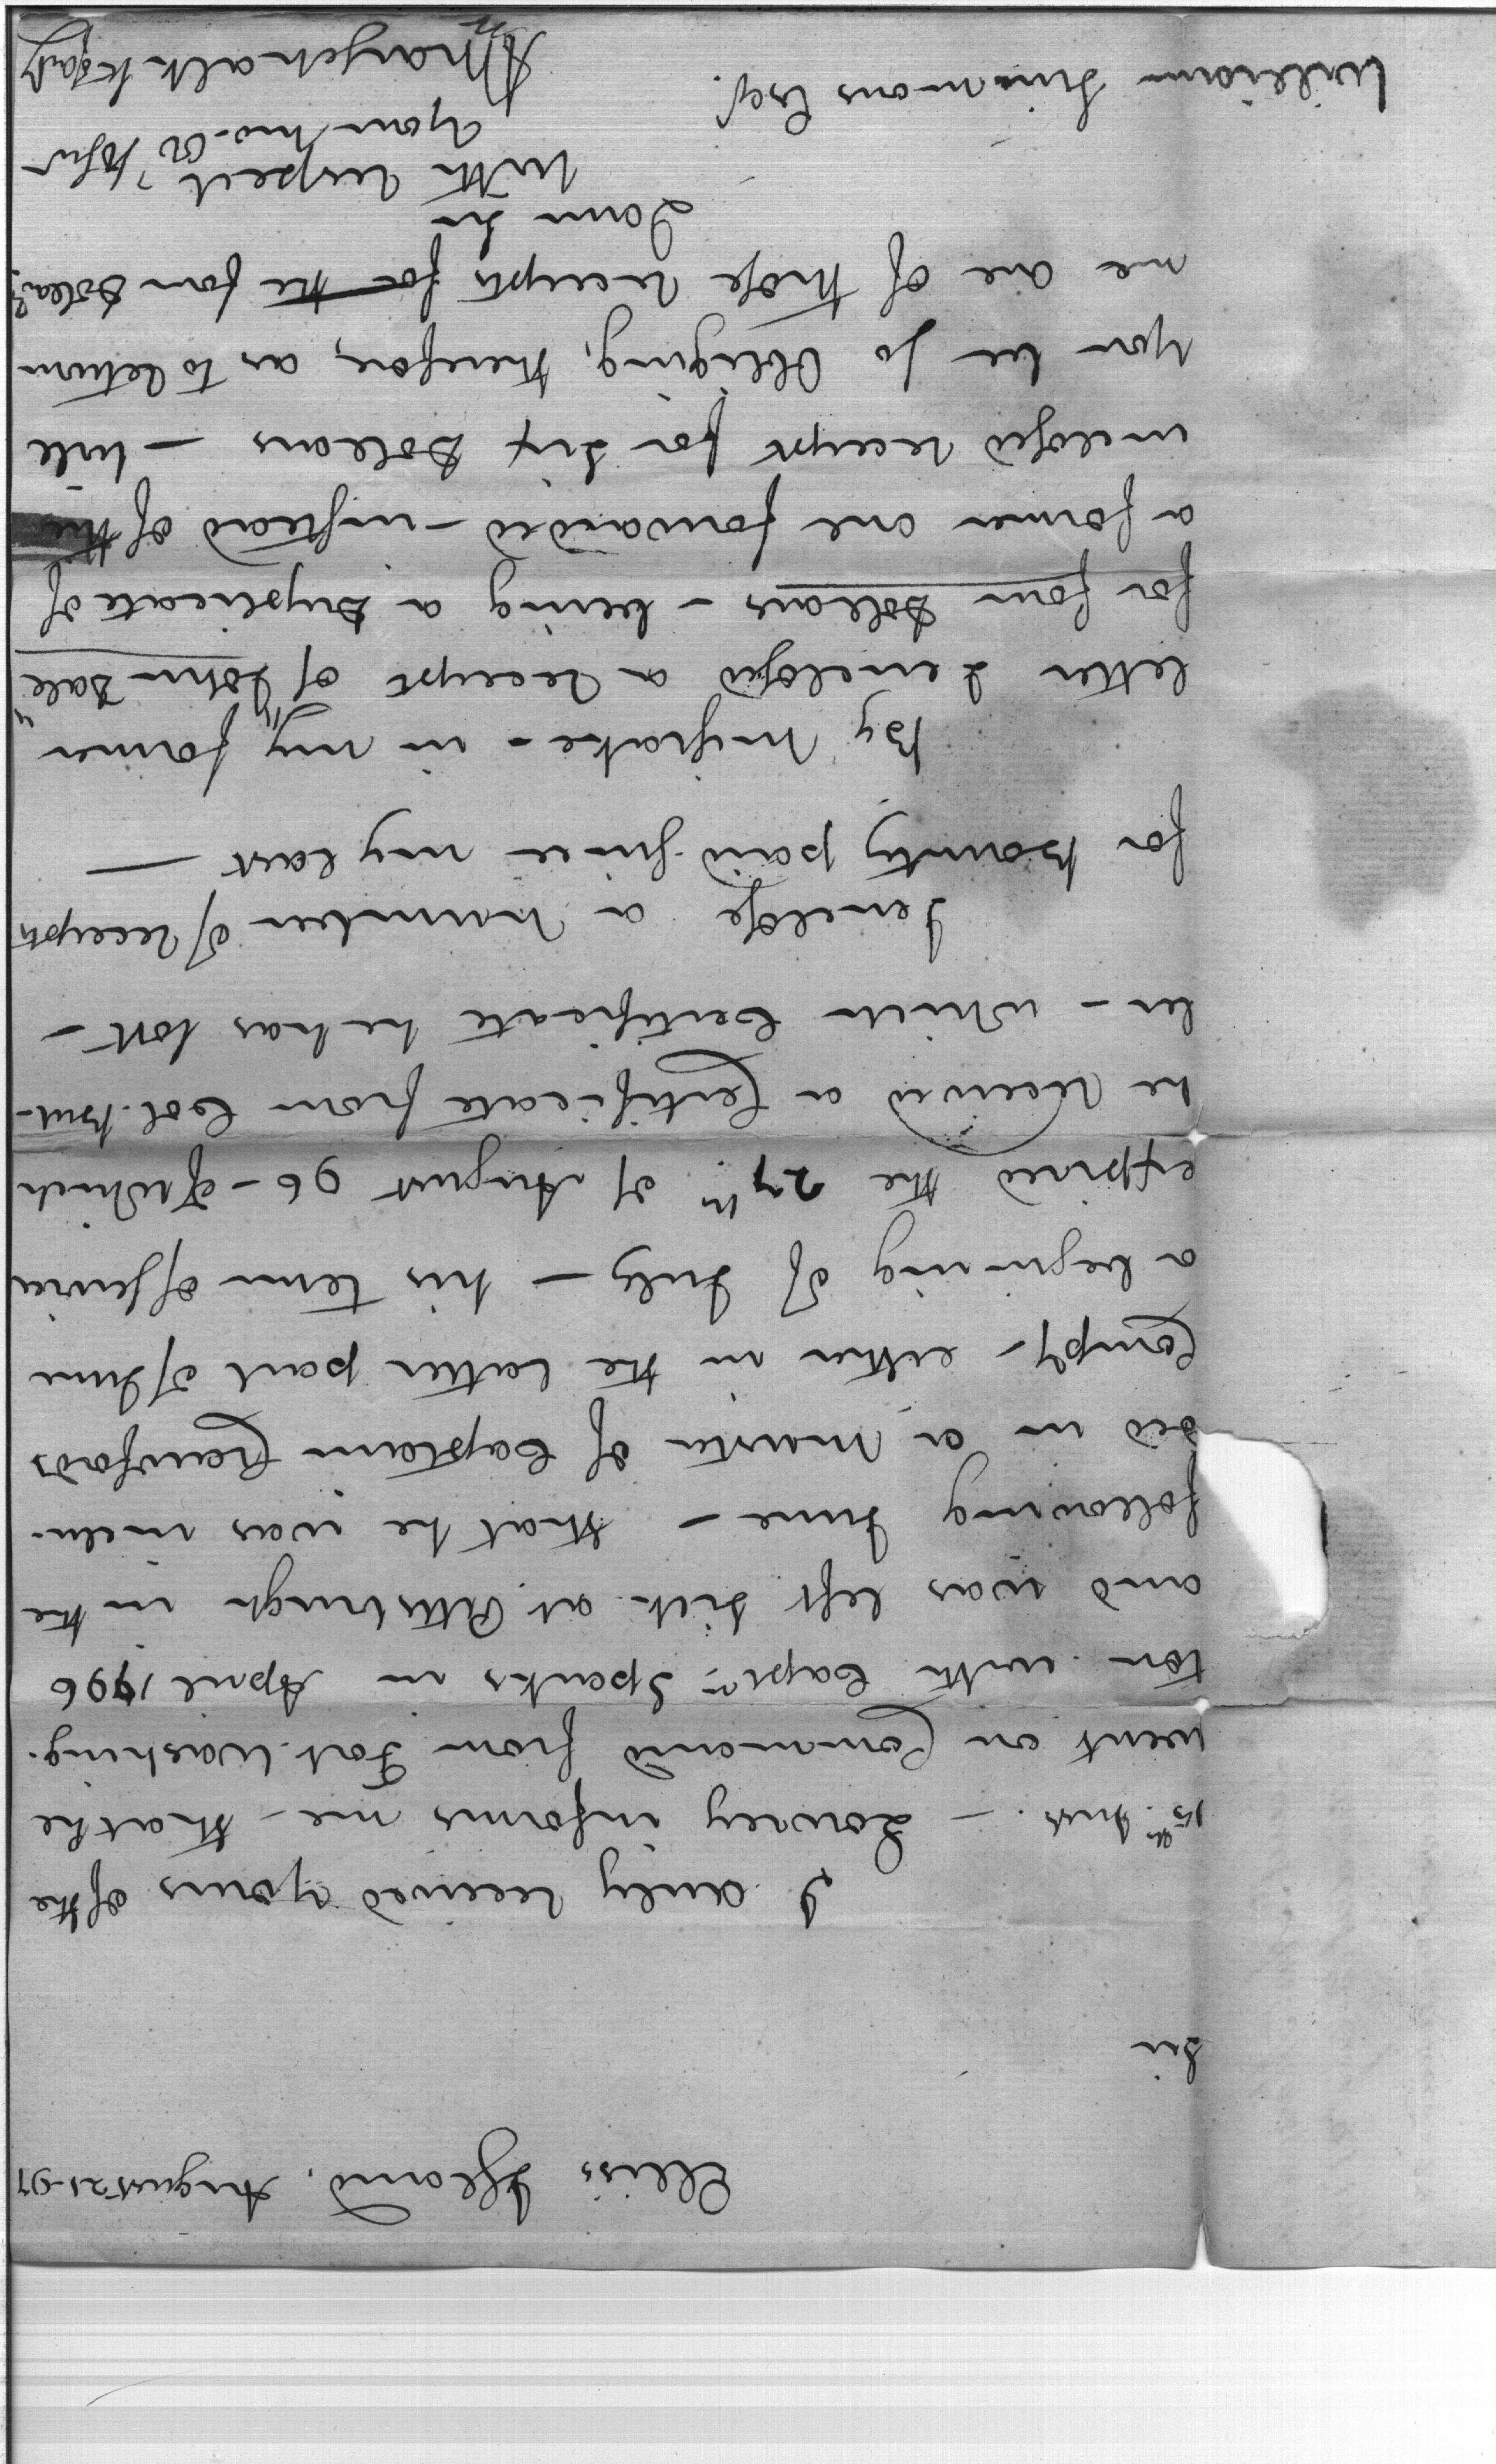 Ellis's Island. August 21-97
Sir
I duly received yours of the
15th Inst. - Lowrey informs me - that he
went on Command from Fort Washing-
ton with Captn. Sparks in April 1796
and was left sick at Pittsburgh in the
following June - that he was inclu-
ded in a Muster of Captain Crawfords
Compy - either in the latter part of June
a beginning of July - his term of service
expired the 27th of August 96 - of which
he received a Certificate from Col. But-
ler - which Certificate he has lost -
Inclose a Number of receipts
for Bounty paid since my last -
By Mistake - in my former
letter I inclosed a receipt of John Dale
for four Dollars - being a Duplicate of
a former one forwarded - instead of the
inclosed receipt for Six Dollars - will
you be so Obliging, therefore, as to return
me one of those receipts for the four Dollars,
I am Sir
With respect
Your Mo. Ob
Marschalk
William Simmons Esqr.